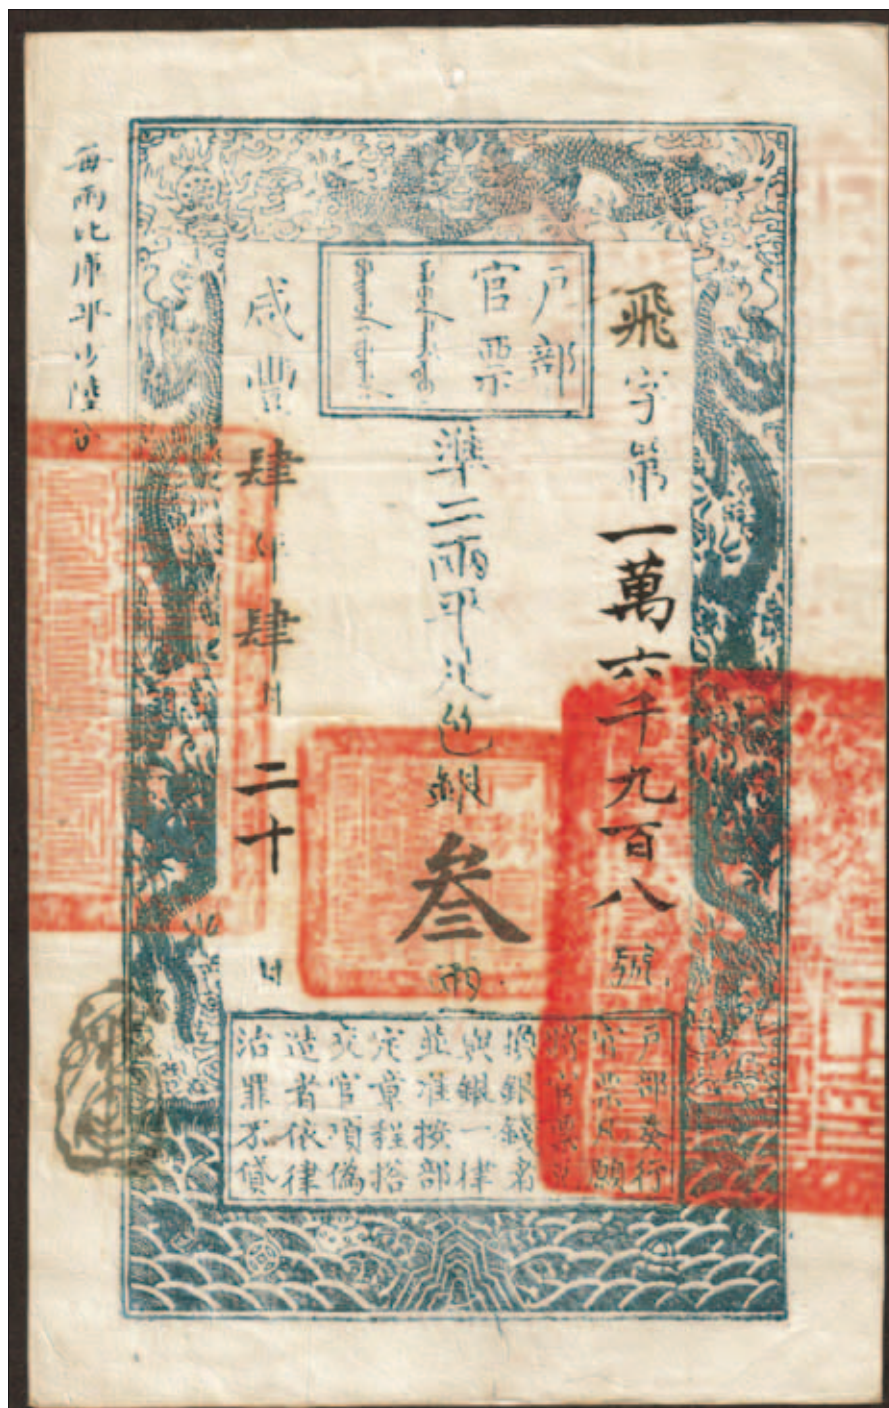 戶部
官票
飛字第一萬六千九百八號
準二兩平足色銀叁兩
咸豐肆年肆月二十日
戶部奏行
官票凡願
將官票兌
換銀錢者
與銀一律
並准按部
定章程搭
交官項偽
造者依律
治罪不貸
每兩比庫平少陸分